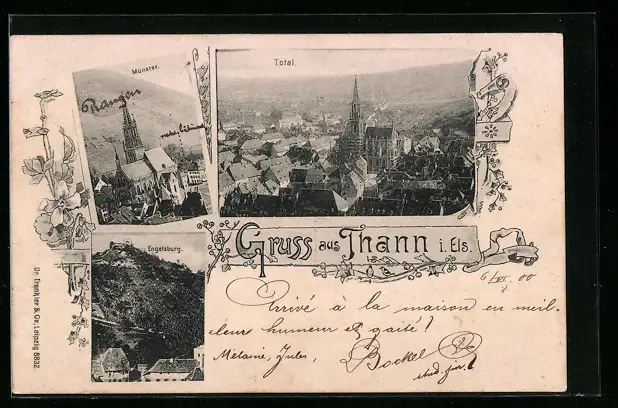 Münster.
Rangen
Total.
Engelsburg.
Gruss aus Thann i. Els.
Dr. Trenkler & Co., Leipzig 8832.
00
Arrivé à la maison en meil-
leure humeur et gaité!
Mélanie, Jules, Bockel
stud. jur.